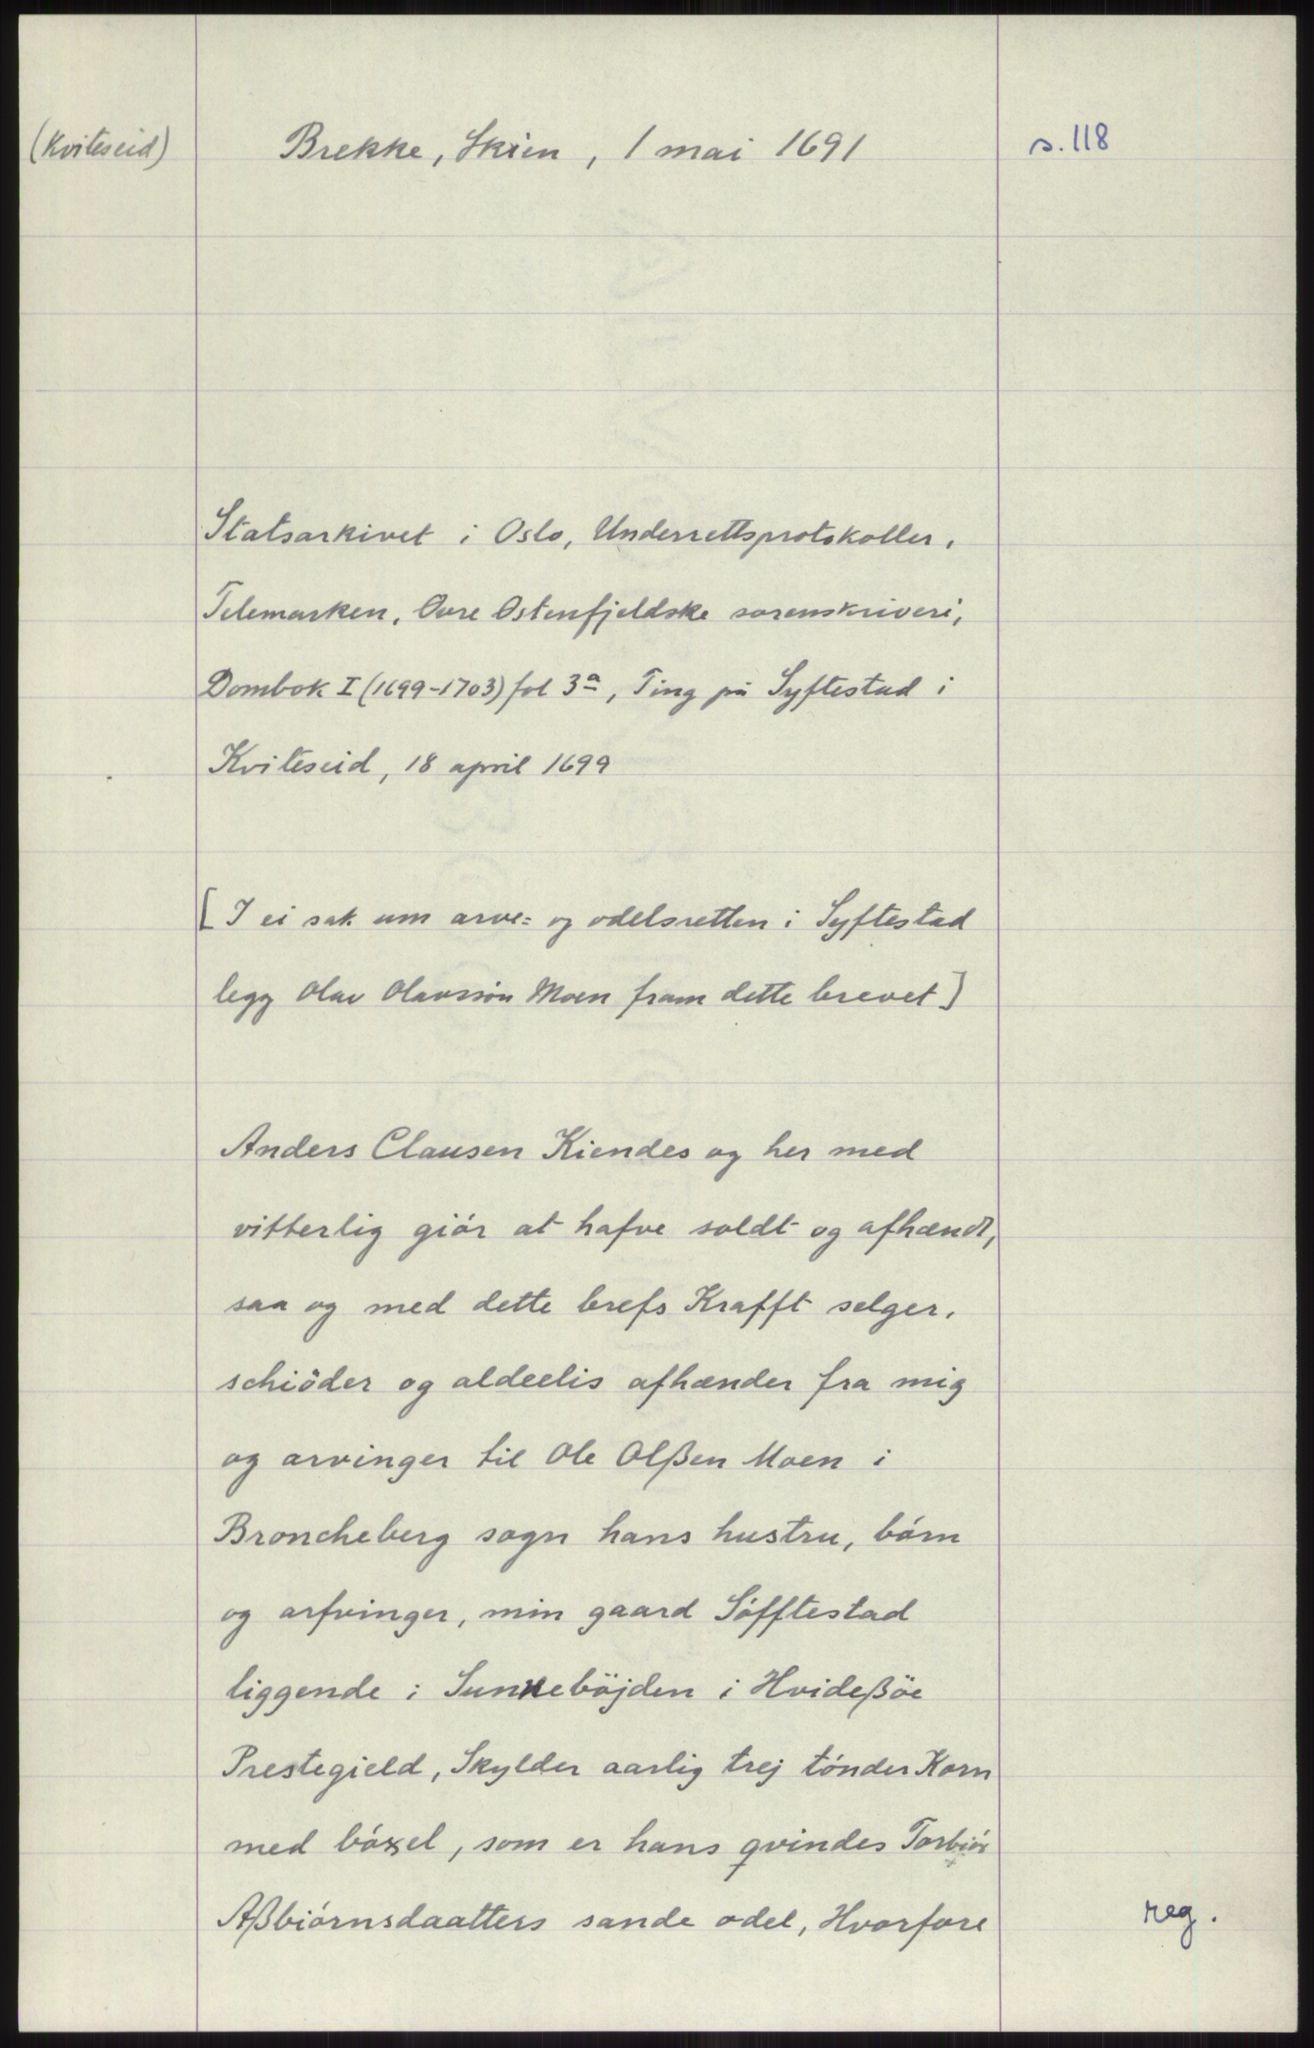 (Kviteseid)
Brekke, Skien, 1 mai 1691
s. 118
Statsarkivet i Oslo, Underrettsprotokoller,
Telemarken, Øvre Østenfjeldske sorenskriveri,
Dombok I (1699-1703) fol 3a, Ting på Syftestad i
Kviteseid, 18 april 1699
[I ei sak um arve= og odelsretten i Syftestad
legg Olav Olavssøn Moen fram dette brevet]
Anders Clausen Kiendes og her med
vitterlig giór at hafve soldt og afhændt,
saa og med dette brefs Krafft selger,
schiöder og aldeelis afhænder fra mig
og arvinger til Ole Olßen Moen i
Broncheberg sogn hans hustru, bórn
og arfvinger, min gaard Sófftestad
liggende i Sunneböjden i Hvideßöe
Prestegield, Skylder aarlig trej tónder Korn
med bóxel, som er hans qvindes Torbiór
Aßbiórnsdaatters sande odel, Hvorfore
reg.